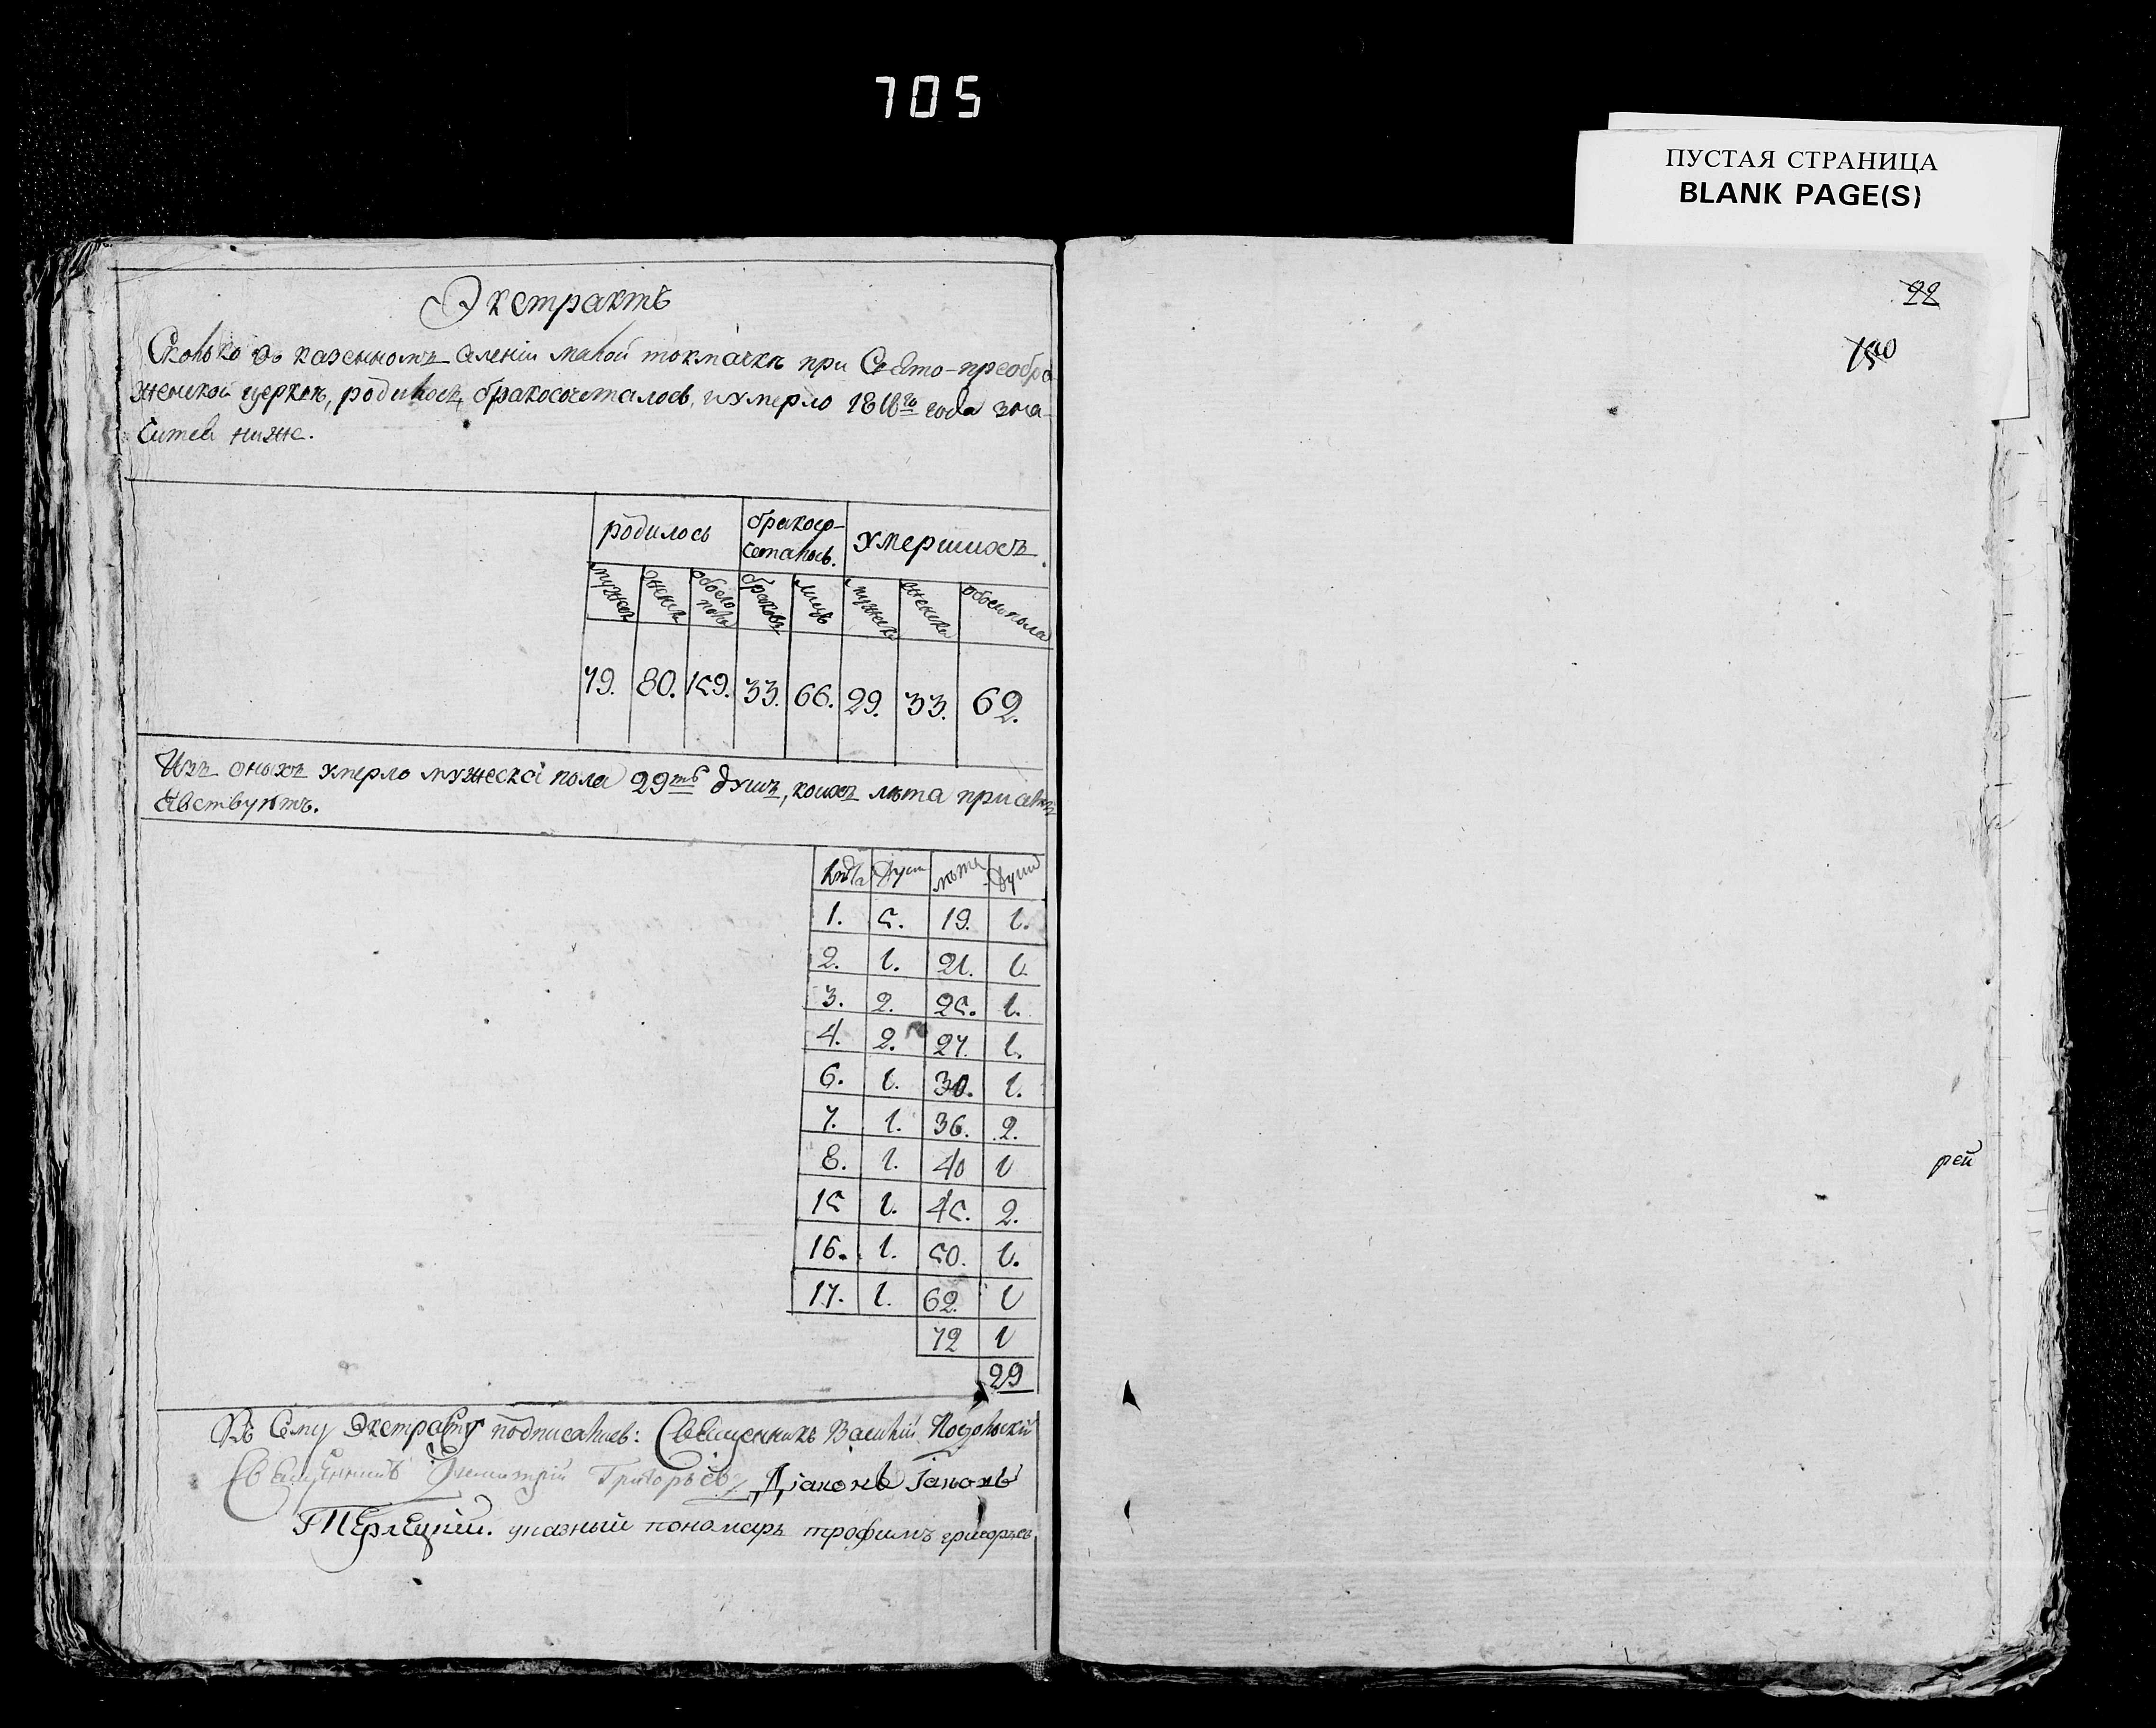 705
ПУСТАЯ СТРАНИЦА
BLANK PAGE(S)
Экстрактъ
Сколько во казенномъ селеніи малой токмачки при Свято-преобра
женской церквѣ, родилось, бракосочеталось, и умерло 1816го года зна
читсѧ ниже.
родилось бракосо-
четалось. умершихъ.
мужеск женск обоего
пола браковъ лицъ мужеска женска обоего пола
79. 80. 159. 33. 66. 29. 33. 62.
Изъ оныхъ умерло мужеска пола 29ть душъ, коихъ лѣта при семъ
явствуютъ.
лѣта Души лѣта Души
1. 5. 19. 1.
2. 1. 21. 1.
3. 2. 25. 1.
4. 2. 27. 1.
6. 1. 30. 1.
7. 1. 36. 2.
8. 1. 40 1
15 1. 45. 2.
16. 1. 50. 1.
17. 1. 62. 1
72 1
29
Къ Сему Экстракту подписались: Священникъ Василій
Священникъ Димитрій Григорьевъ Діаконъ Іаковъ
Терлецкій. указный пономарь трофимъ григорьевъ
22
рей